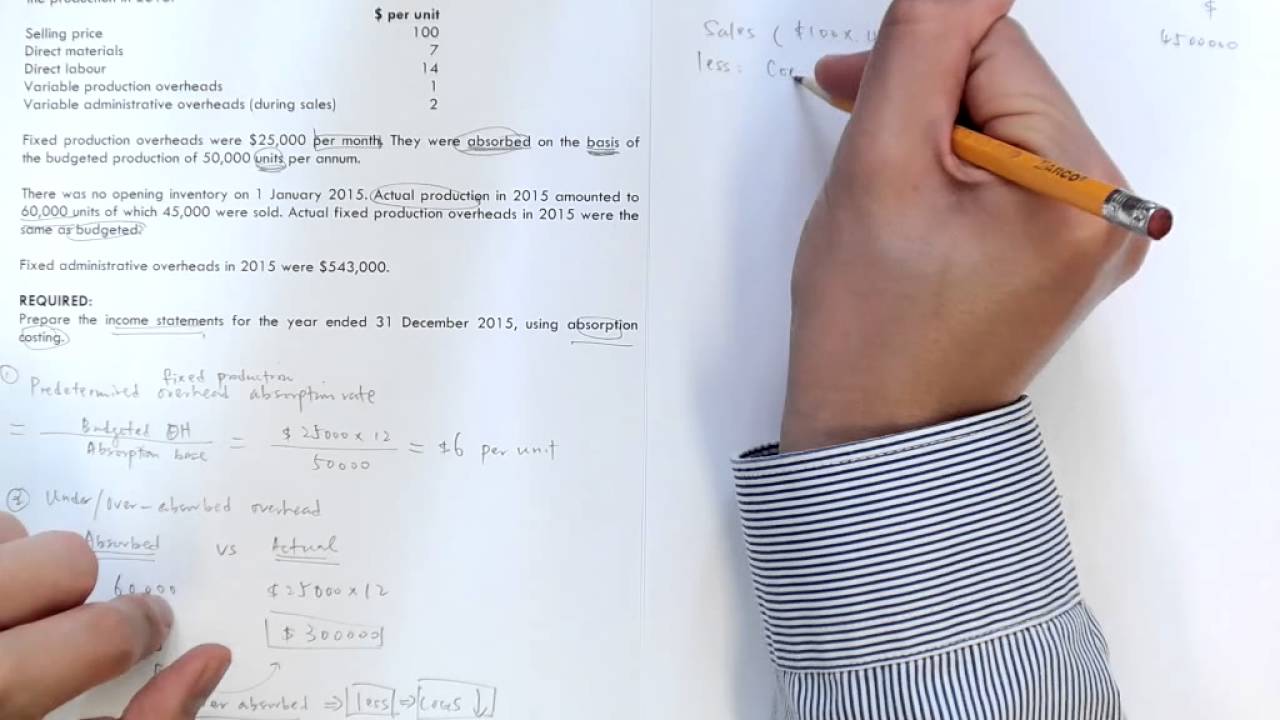 the production in 2015.
$ per unit
Selling price 100
Direct materials 7
Direct labour 14
Variable production overheads 1
Variable administrative overheads (during sales) 2
Fixed production overheads were $25,000 per month. They were absorbed on the basis of
the budgeted production of 50,000 units per annum.
There was no opening inventory on 1 January 2015. Actual production in 2015 amounted to
60,000 units of which 45,000 were sold. Actual fixed production overheads in 2015 were the
same as budgeted.
Fixed administrative overheads in 2015 were $543,000.
REQUIRED:
Prepare the income statements for the year ended 31 December 2015, using absorption
costing.
① Predetermined fixed production
overhead absorption rate
= Budgeted OH / Absorption base = $25000 x 12 / 50000 = $6 per unit
② Under/over-absorbed overhead
Absorbed vs Actual
60000 $25000 x 12
$300000
absorbed ⇒ less ⇒ COGS ↓
$
Sales ($100 x 4500000
less: Co
ZANCOR